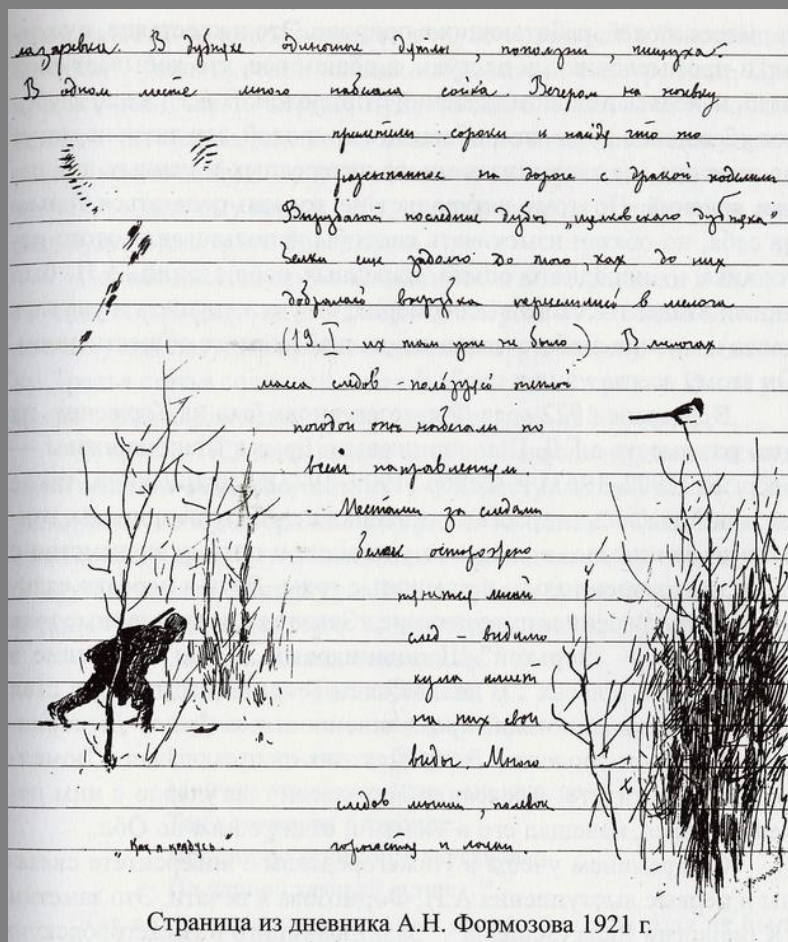 лазаревки. В дубняке одиночные дятлы, поползни, пищуха.
В одном месте много набегала сойка Вечером на ночевку
прилетели сороки и найдя что то
рассыпанное на дороге с дракой поделили
Вырубают последние дубы „щелковского дубняка"
Белки еще задолго до того как до них
добралась вырубка переселились в мелога
(19.I их там уже не было) В мелогах
масса следов - полагу теплой
погодой они набегали по
всем направлениям.
Местами за следами
белок осторожно
тянется лисий
след – видимо
кума имеет
на них свои
виды. Много
следов мыши, полевок
горностая и ласки.
Как я крадусь...
Страница из дневника А.Н. Формозова 1921 г.